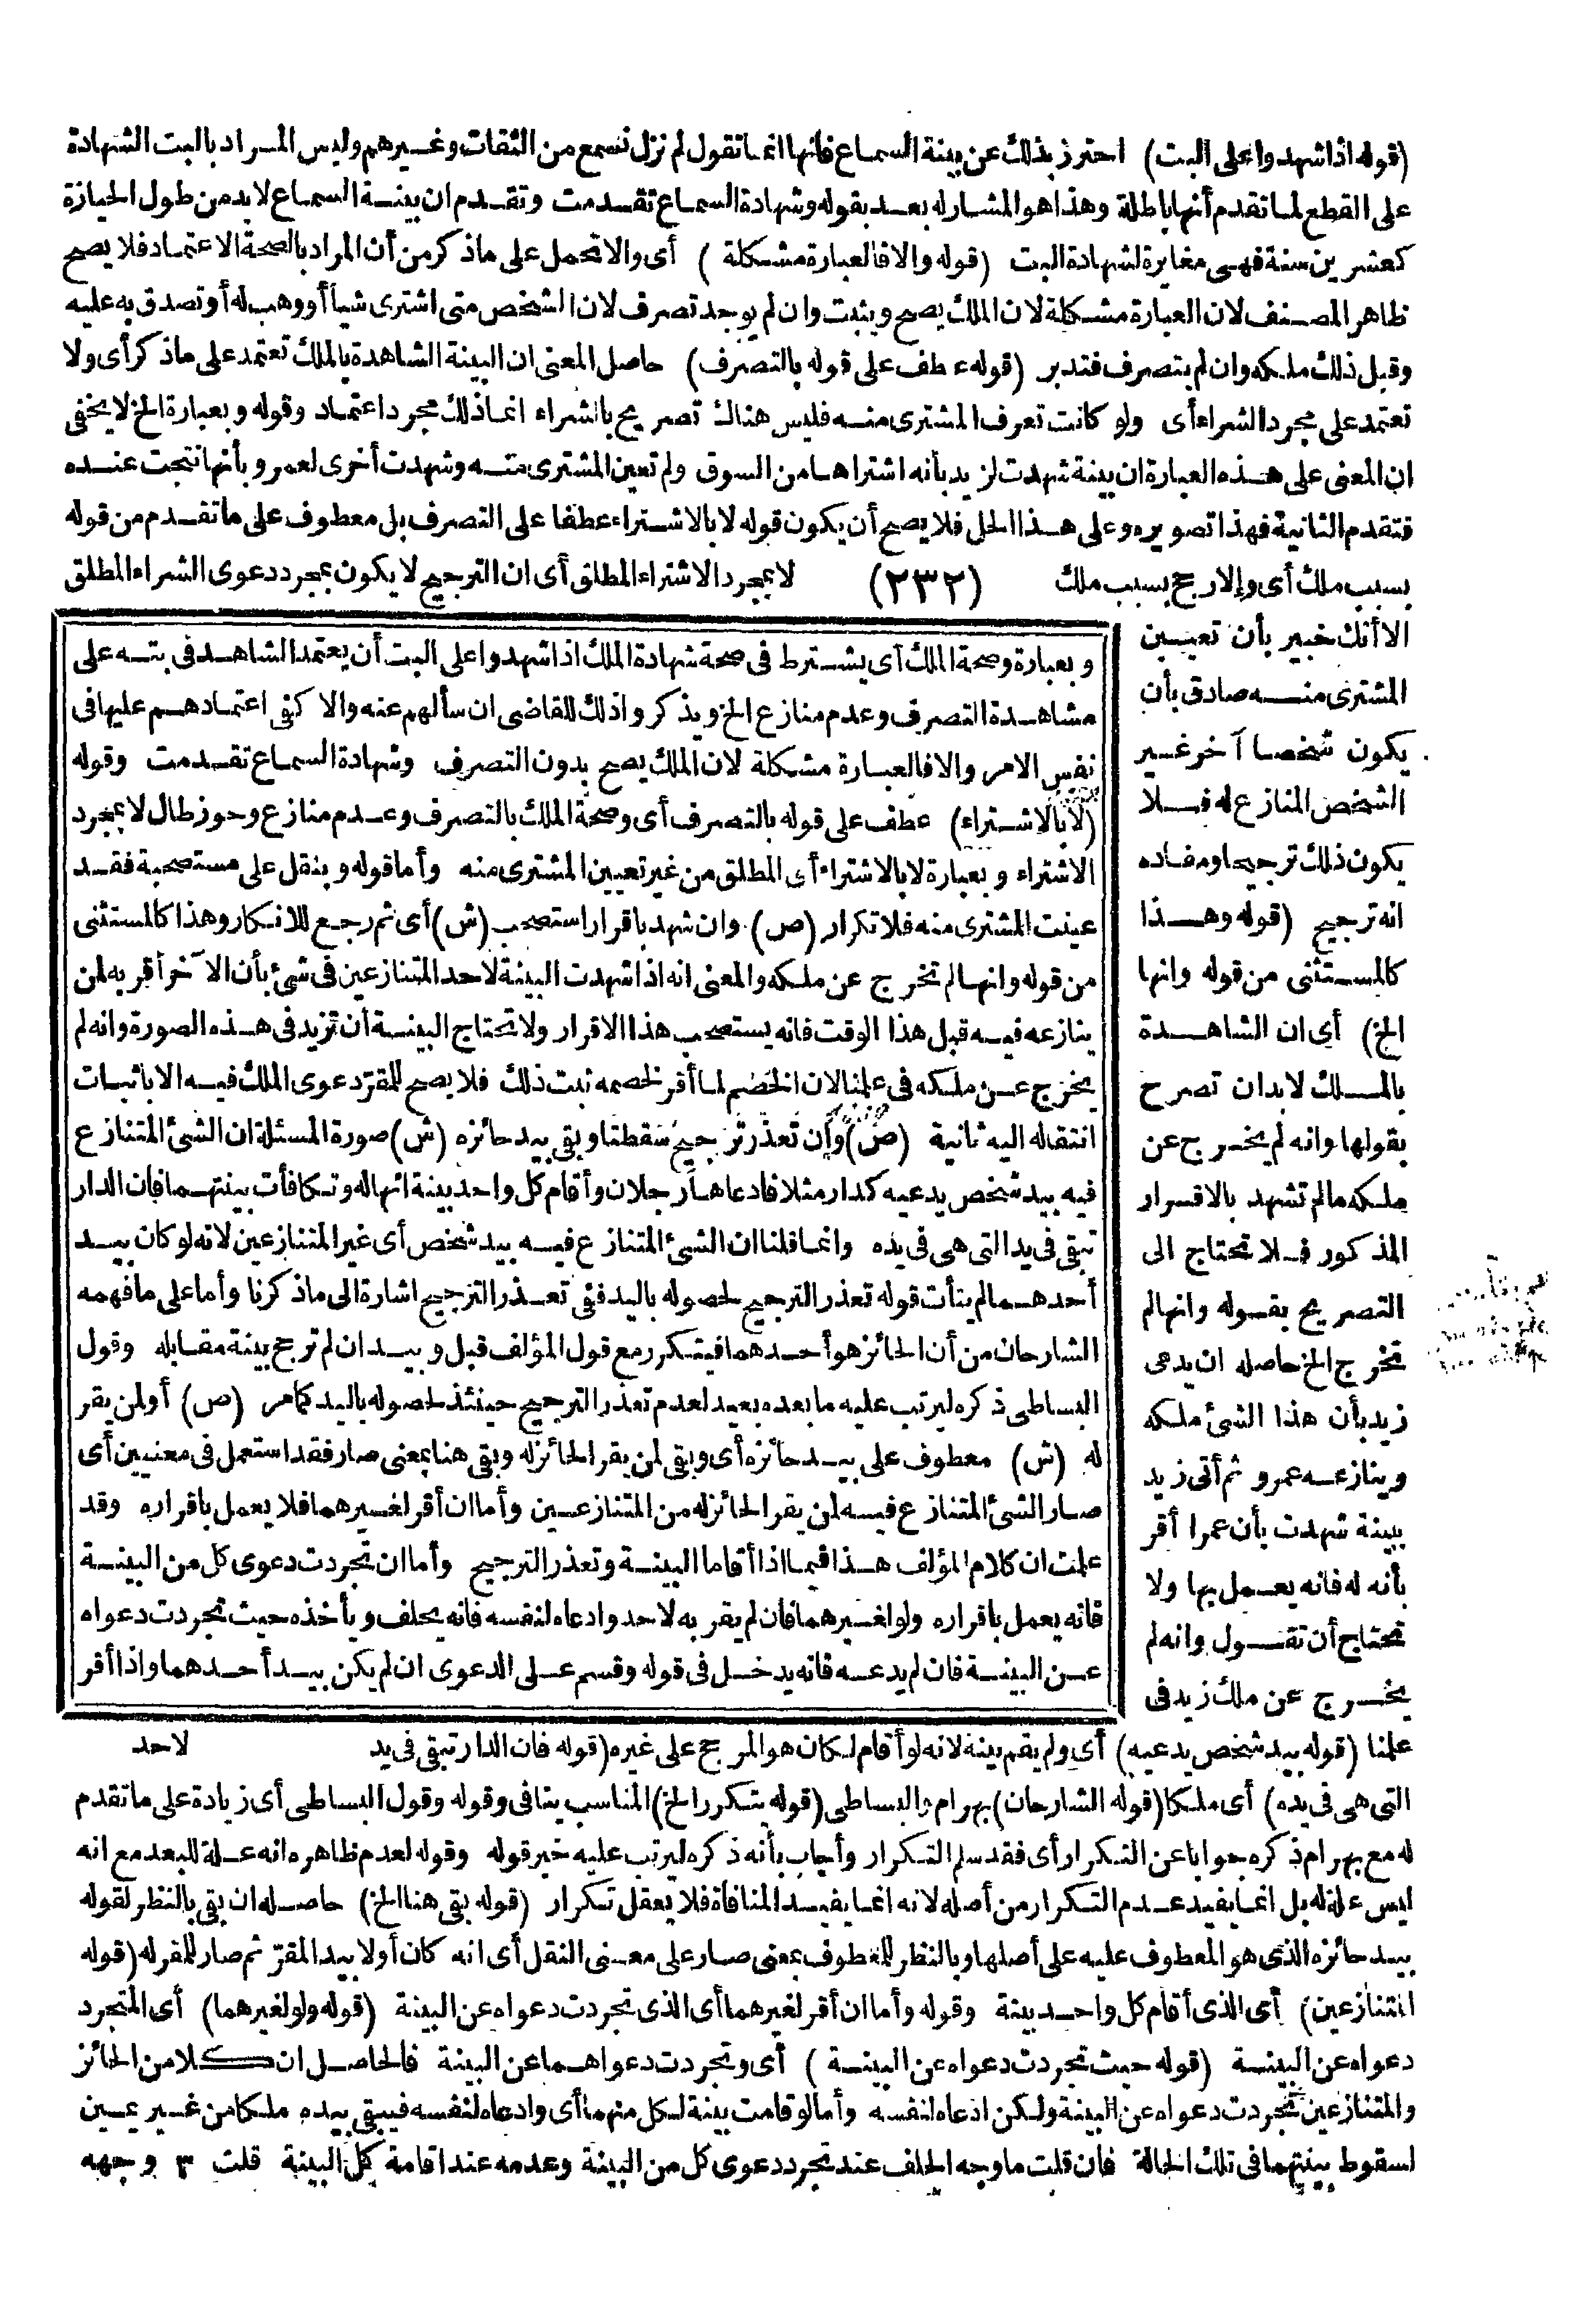 (قوله اذا شهدوا على البت) احترز بذلك عن بينة السماع فانها انما تقول لم نزل نسمع من الثقات وغيرهم وليس المراد بالبت الشهادة
على القطع لما تقدم أنها باطلة وهذا هو المشار له بعد بقوله وشهادة السماع تقدمت وتقدم ان بينة السماع لا بد من طول الحيازة
كعشرين سنة فهى مغايرة لشهادة البت (قوله والا فالعبارة مشكلة) أى والا تحمل على ماذكر من أن المراد بالصحة الاعتماد فلا يصح
ظاهر المصنف لان العبارة مشكلة لان الملك يصح ويثبت وان لم يوجد تصرف لان الشخص متى اشترى شيأ أو وهب له أو تصدق به عليه
وقبل ذلك ملكه وان لم يتصرف فتدبر (قوله عطف على قوله بالتصرف) حاصل المعنى ان البينة الشاهدة بالملك تعتمد على ماذكر أى ولا
تعتمد على مجرد الشراء أى ولو كانت تعرف المشترى منه فليس هناك تصريح بالشراء انما ذلك مجرد اعتماد وقوله وبعبارة الخ لا يخفى
ان المعنى على هذه العبارة ان بينة شهدت لزيد بأنه اشتراها من السوق ولم تعين المشترى منه وشهدت أخرى لعمرو بأنها نتجت عنده
فتقدم الثانية فهذا تصويره وعلى هذا الحل فلا يصح أن يكون قوله لا بالاشتراء عطفا على التصرف بل معطوف على ما تقدم من قوله
بسبب ملك أى والا رجح بسبب ملك (٢٣٢) لا بمجرد الاشتراء المطلق أى ان الترجيح لا يكون بمجرد دعوى الشراء المطلق
الا أنك خبير بأن تعيين
المشترى منه صادق بأن
يكون شخصا آخر غير
الشخص المنازع له فلا
يكون ذلك ترجيحا ومفاده
انه ترجيح (قوله وهذا
كالمستثنى من قوله وانها
الخ) أى ان الشاهدة
بالملك لا بد ان تصرح
بقولها وانه لم يخرج عن
ملكه مالم تشهد بالاقرار
المذكور فلا تحتاج الى
التصريح بقوله وانها لم
تخرج الخ حاصله ان يدعى
زيد بأن هذا الشئ ملكه
وينازعه عمرو ثم أتى زيد
ببينة شهدت بأن عمرا أقر
بأنه له فانه يعمل بها ولا
تحتاج أن تقول وانه لم
يخرج عن ملك زيد فى
وبعبارة وصحة الملك أى يشترط فى صحة شهادة الملك اذا شهدوا على البت أن يعتمد الشاهد فى بته على
مشاهدة التصرف وعدم منازع الخ ويذكروا ذلك للقاضى ان سألهم عنه والا كفى اعتمادهم عليها فى
نفس الامر والا فالعبارة مشكلة لان الملك يصح بدون التصرف وشهادة السماع تقدمت وقوله
(لا بالاشتراء) عطف على قوله بالتصرف أى وصحة الملك بالتصرف وعدم منازع وحوز طال لا بمجرد
الاشتراء وبعبارة لا بالاشتراء أى المطلق من غير تعيين المشترى منه وأما قوله وبنقل على مستصحبة فقد
عينت المشترى منه فلا تكرار (ص) وان شهد باقرار استصحب (ش) أى ثم رجع للانكار وهذا كالمستثنى
من قوله وانها لم تخرج عن ملكه والمعنى انه اذا شهدت البينة لاحد المتنازعين فى شئ بأن الآخر أقر به لمن
ينازعه فيه قبل هذا الوقت فانه يستصحب هذا الاقرار ولا تحتاج البينة أن تزيد فى هذه الصورة وانه لم
يخرج عن ملكه فى علمنا لان الخصم لما أقر لخصمه ثبت ذلك فلا يصح للمقر دعوى الملك فيه الا باثبات
انتقاله اليه ثانية (ص) وان تعذر ترجيح سقطتا وبقى بيد حائزه (ش) صورة المسئلة ان الشئ المتنازع
فيه بيد شخص يدعيه كدار مثلا فادعاها رجلان وأقام كل واحد بينة انها له وتكافأت بينتهما فان الدار
تبقى فى يد التى هى فى يده وانما قلنا ان الشئ المتنازع فيه بيد شخص أى غير المتنازعين لانه لو كان بيد
أحدهما لم يتأت قوله تعذر الترجيح لحصوله باليد ففى تعذر الترجيح اشارة الى ماذكرنا وأما على ما فهمه
الشارحان من أن الحائز هو أحدهما فيتكرر مع قول المؤلف قبل وبيد ان لم ترجح بينة مقابله وقول
البساطى ذكره ليرتب عليه ما بعده بعيد لعدم تعذر الترجيح حينئذ لحصوله باليد كما مر (ص) أو لمن يقر
له (ش) معطوف على بيد حائزه أى وبقى لمن يقر الحائز له وبقى هنا بمعنى صار فقد استعمل فى معنيين أى
صار الشئ المتنازع فيه لمن يقر الحائز له من المتنازعين وأما ان أقر لغيرهما فلا يعمل باقراره وقد
علمت ان كلام المؤلف هذا فيما اذا أقاما البينة وتعذر الترجيح وأما ان تجردت دعوى كل من البينة
فانه يعمل باقراره ولو لغيرهما فان لم يقر به لاحد وادعاه لنفسه فانه يحلف ويأخذه حيث تجردت دعواه
عن البينة فان لم يدعه فانه يدخل فى قوله وقسم على الدعوى ان لم يكن بيد أحدهما واذا أقر
علمنا (قوله بيد شخص يدعيه) أى ولم يقم بينة لانه لو أقام لكان هو المرجح على غيره (قوله فان الدار تبقى فى يد لاحد
التى هى فى يده) أى ملكا (قوله الشارحان) بهرام والبساطى (قوله يتكرر الخ) المناسب ينافى وقوله وقول البساطى أى زيادة على ما تقدم
له مع بهرام ذكره جوابا عن التكرار أى فقد سلم التكرار وأجاب بأنه ذكره ليرتب عليه خبر قوله وقوله لعدم ظاهره انه علة للبعد مع انه
ليس علة له بل انما يفيد عدم التكرار من أصله لانه انما يفيد المنافاة فلا يعقل تكرار (قوله بقى هنا الخ) حاصله ان بقى بالنظر لقوله
بيد حائزه الذى هو المعطوف عليه على أصلها وبالنظر للمعطوف بمعنى صار على معنى النقل أى انه كان أولا بيد المقر ثم صار للمقر له (قوله
المتنازعين) أى الذى أقام كل واحد بينة وقوله وأما ان أقر لغيرهما أى الذى تجردت دعواه عن البينة (قوله ولو لغيرهما) أى المتجرد
دعواه عن البينة (قوله حيث تجردت دعواه عن البينة) أى وتجردت دعواهما عن البينة فالحاصل ان كلا من الحائز
والمتنازعين تجردت دعواه عن البينة ولكن ادعاه لنفسه وأما لو قامت بينة لكل منهما أى وادعاه لنفسه فيبقى بيده ملكا من غير يمين
لسقوط بينتهما فى تلك الحالة فان قلت ما وجه الحلف عند تجرد دعوى كل من البينة وعدمه عند اقامة كل البينة قلت ٣ وجهه